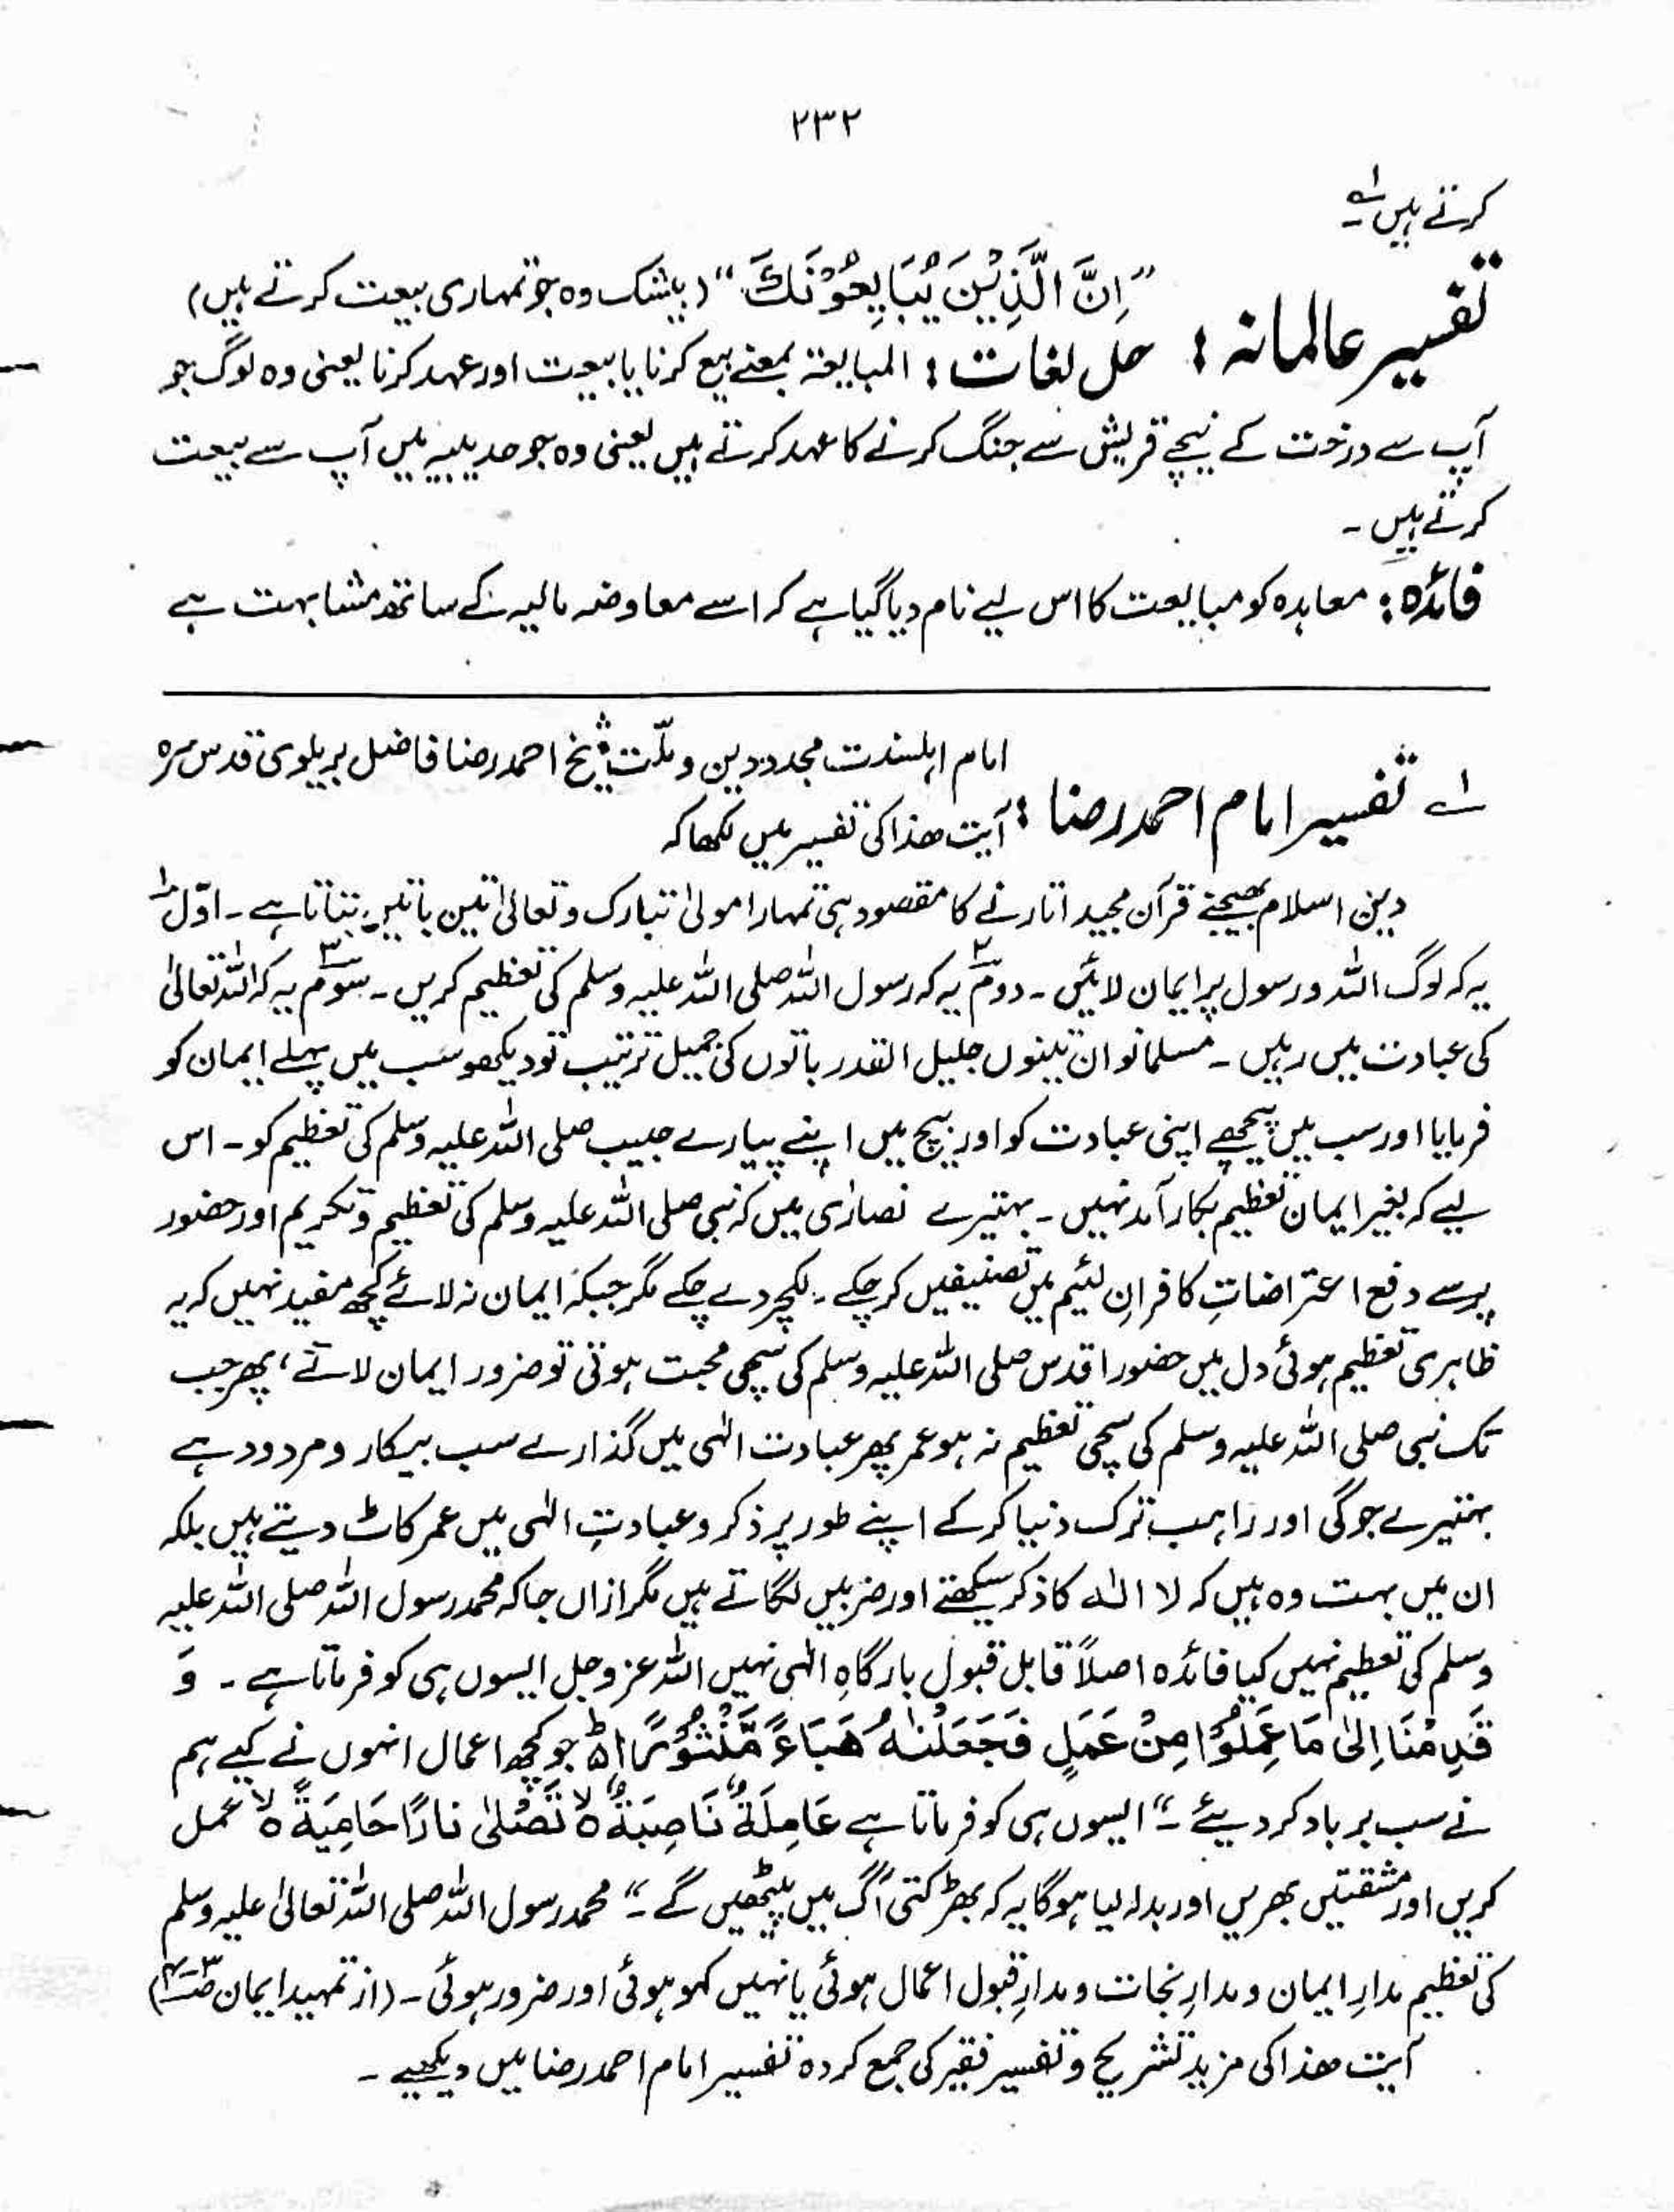 ۲۳۲
کرتے ہیں ۱؎
تفسیر عالمانہ : "اِنَّ الَّذِیْنَ یُبَایِعُوْنَكَ" (بیشک وہ جو تمہاری بیعت کرتے ہیں)
حل لغات : المبایعۃ بمعنے بیع کرنا یا بیعت اور عہد کرنا یعنی وہ لوگ جو
آپ سے درخت کے نیچے قریش سے جنگ کرنے کا عہد کرتے ہیں یعنی وہ جو حدیبیہ میں آپ سے بیعت
کرتے ہیں ۔
فائدہ : معاہدہ کو مبایعت کا اس لیے نام دیا گیا ہے کہ اسے معاوضہ مالیہ کے ساتھ مشابہت ہے
۱؎ تفسیر امام احمد رضا : امام اہلسنت مجدد دین و ملّت شیخ احمد رضا فاضل بریلوی قدس سرہ
آیت ھذا کی تفسیر میں لکھا کہ
دین اسلام بھیجنے قرآن مجید اتارنے کا مقصود ہی تمہارا مولیٰ تبارک و تعالیٰ تین باتیں بتاتا ہے ۔ اوّل ۱
یہ کہ لوگ اللہ و رسول پر ایمان لائیں ۔ دوم ۲ یہ کہ رسول اللہ صلی اللہ علیہ وسلم کی تعظیم کریں ۔ سوم ۳ یہ کہ اللہ تعالیٰ
کی عبادت میں رہیں ۔ مسلمانو ان تینوں جلیل القدر باتوں کی جمیل ترتیب تو دیکھو سب میں پہلے ایمان کو
فرمایا اور سب میں پیچھے اپنی عبادت کو اور بیچ میں اپنے پیارے حبیب صلی اللہ علیہ وسلم کی تعظیم کو ۔ اس
لیے کہ بغیر ایمان تعظیم بکار آمد نہیں ۔ بہتیرے نصارٰی ہیں کہ نبی صلی اللہ علیہ وسلم کی تعظیم و تکریم اور حضور
پر سے دفع اعتراضاتِ کافرانِ لئیم میں تصنیفیں کر چکے ۔ لکچر دے چکے مگر جبکہ ایمان نہ لائے کچھ مفید نہیں کہ یہ
ظاہری تعظیم ہوئی دل میں حضور اقدس صلی اللہ علیہ وسلم کی سچی محبت ہوتی تو ضرور ایمان لاتے، پھر جب
تک نبی صلی اللہ علیہ وسلم کی سچی تعظیم نہ ہو عمر بھر عبادت الٰہی میں گذارے سب بیکار و مردود ہے
بہتیرے جوگی اور راہب ترک دنیا کر کے اپنے طور پر ذکر و عبادتِ الٰہی میں عمر کاٹ دیتے ہیں بلکہ
ان میں بہت وہ ہیں کہ لا الٰہ کا ذکر سیکھتے اور ضربیں لگاتے ہیں مگر ازاں جا کہ محمد رسول اللہ صلی اللہ علیہ
وسلم کی تعظیم نہیں کیا فائدہ اصلاً قابل قبول بارگاہِ الٰہی نہیں اللہ عز و جل ایسوں ہی کو فرماتا ہے ۔ وَ
قَدِمْنَا اِلیٰ مَا عَمِلُوْا مِنْ عَمَلٍ فَجَعَلْنٰهُ هَبَآءً مَّنْثُوْرًا جو کچھ اعمال انہوں نے کیے ہم
نے سب برباد کر دیئے ۔" ایسوں ہی کو فرماتا ہے عَامِلَةٌ نَّاصِبَةٌ ہ لا تَصْلٰی نَارًا حَامِیَةً ہ لا عمل
کریں اور مشقتیں بھریں اور بدلہ لیا ہو گا یہ کہ بھڑکتی آگ میں پیٹھیں گے ۔" محمد رسول اللہ صلی اللہ تعالیٰ علیہ وسلم
کی تعظیم مدارِ ایمان و مدارِ نجات و مدارِ قبول اعمال ہوئی یا نہیں کہو ہوئی اور ضرور ہوئی ۔ (از تمہید ایمان)
آیت ھذا کی مزید تشریح و تفسیر فقیر کی جمع کردہ تفسیر امام احمد رضا میں دیکھیے ۔